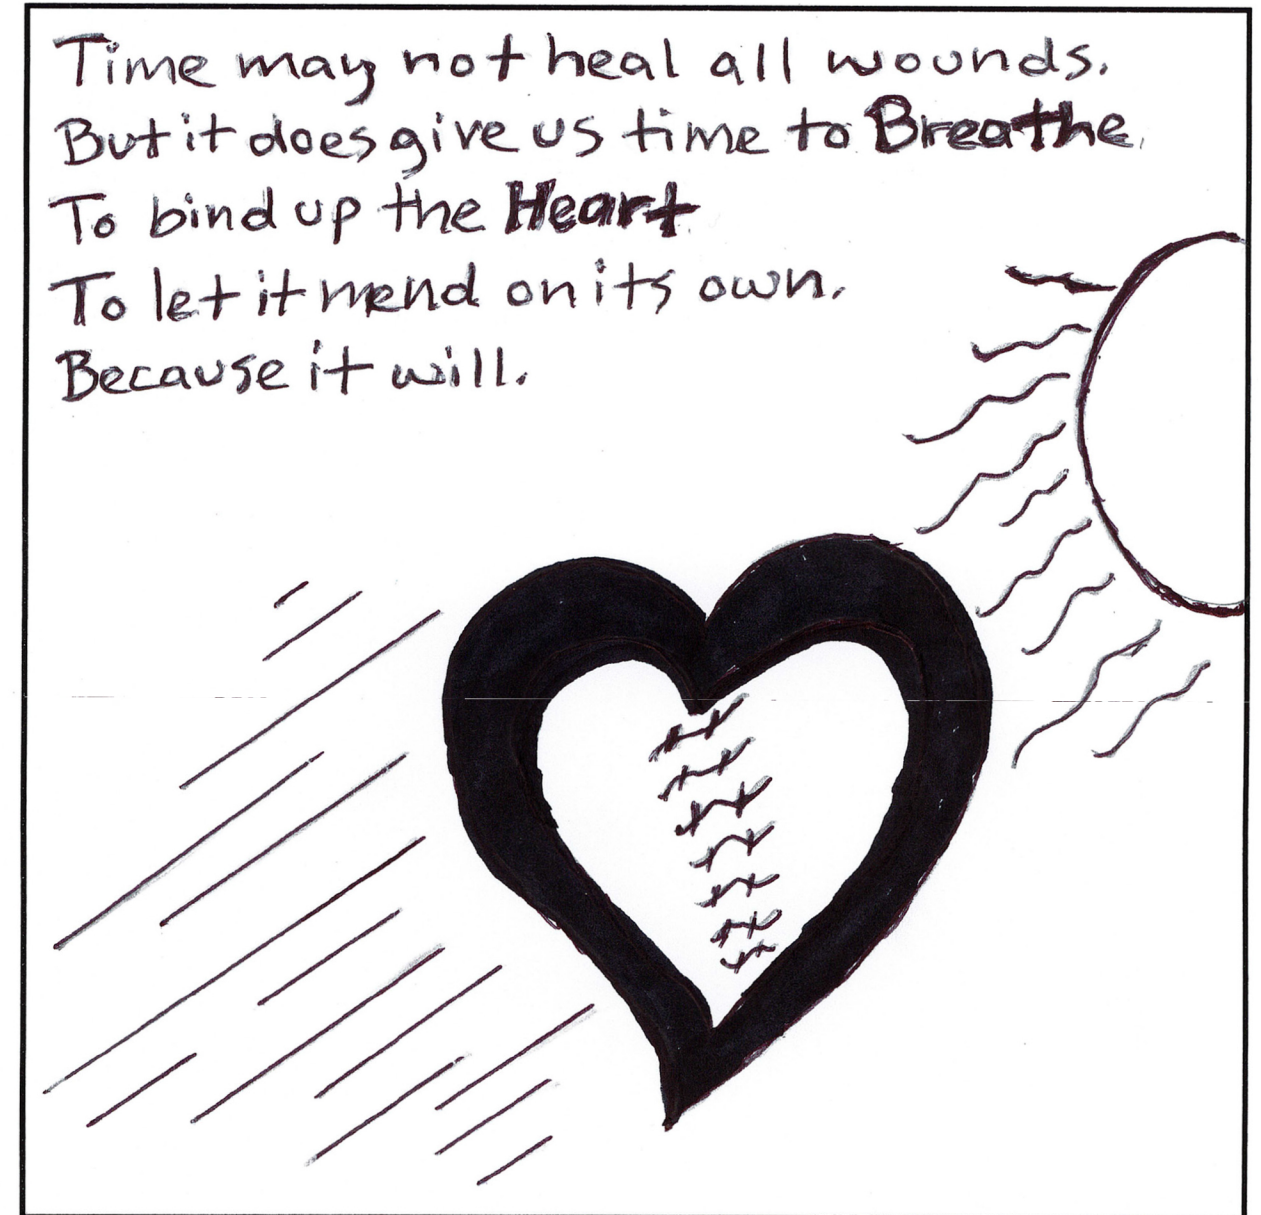 Time may not heal all wounds.
But it does give us time to Breathe.
To bind up the Heart
To let it mend on its own.
Because it will.